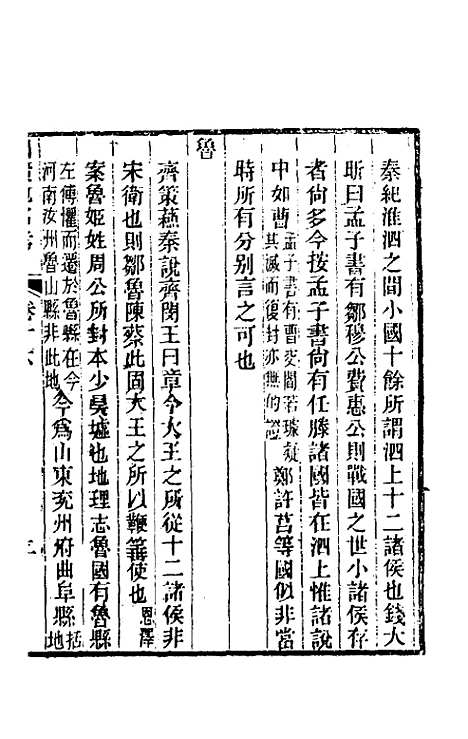 秦紀淮泗之間小國十餘所謂泗上十二諸侯也錢大
昕曰孟子書有鄒穆公費惠公則戰國之世小諸侯存
者尚多今按孟子書尚有任滕諸國皆在泗上惟諸說
中如曹孟子書有曹交閻若璩疑其滅而復封亦無的證鄭許莒等國似非當
時所有分別言之可也
魯
齊策蘇秦說齊閔王曰章今大王之所從十二諸侯非
宋衛也則鄒魯陳蔡此固大王之所以鞭箠使也恩澤
案魯姬姓周公所封本少昊墟也地理志魯國有魯縣
左傳懼而遷於魯縣在今河南汝州魯山縣非此地今為山東兖州府曲阜縣地括
卷十六
三